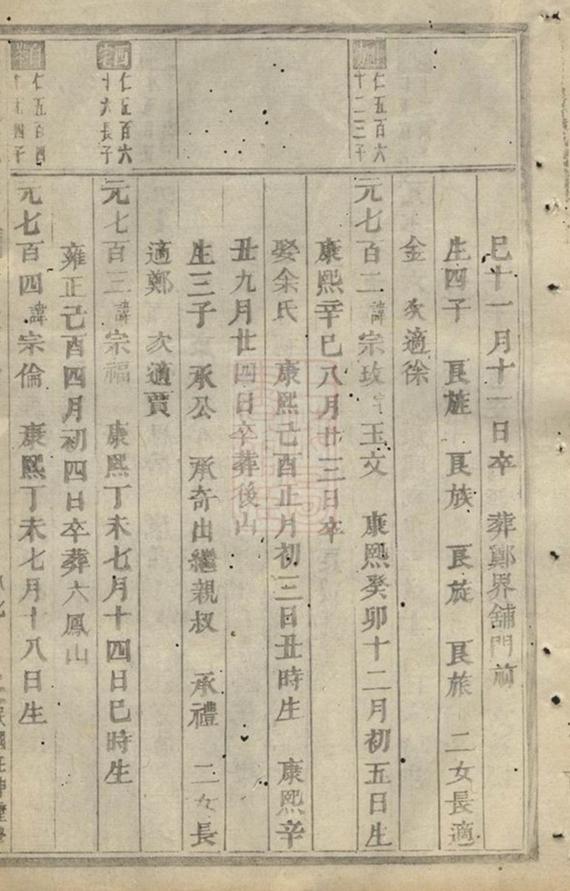 巳十一月十一日卒 葬鄭界舖門前
生四子 良旌 良族 良旋 良旅 二女長適
金 次適徐
仁五百六
十二三子
元七百二 諱宗玫 字玉文 康熙癸卯十二月初五日生
康熙辛巳八月廿三日卒
娶余氏 康熙己酉正月初三日丑時生 康熙辛
丑九月廿四日卒葬後山
生三子 承公 承奇出繼親叔 承禮 二女長
適鄭 次適賈
仁五百六
十六長子
元七百三 諱宗福 康熙丁未七月十四日巳時生
雍正己酉四月初四日卒葬六鳳山
仁五百四
子
元七百四 諱宗倫 康熙丁未七月十八日生